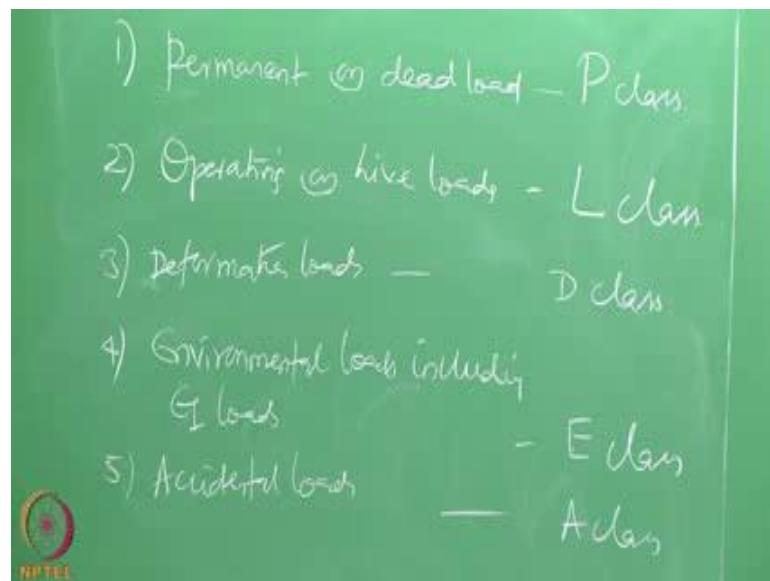 1) Permanent or dead load – P class
2) Operating or live loads – L class
3) Deformation loads — D class
4) Environmental loads including
EQ loads – E class
5) Accidental loads — A class
NPTEL